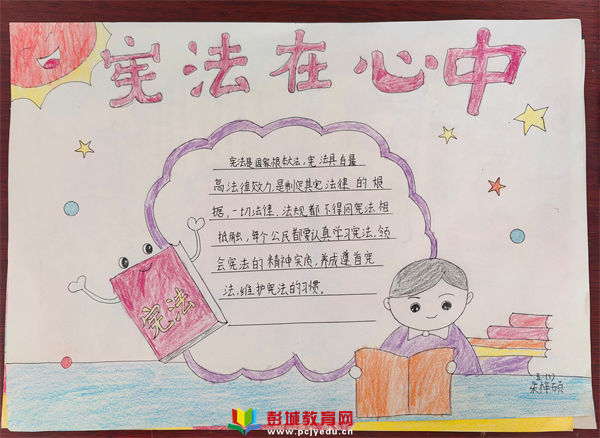 宪法在心中
宪法是国家根本大法，宪法具有最
高法律效力，是制定其它法律的根
据，一切法律、法规都不得同宪法相
抵触，每个公民都要认真学习宪法，领
会宪法的精神实质，养成遵守宪
法，维护宪法的习惯。
宪法
五(1)
朱怿硕
彭城教育网
www.pcjyedu.cn